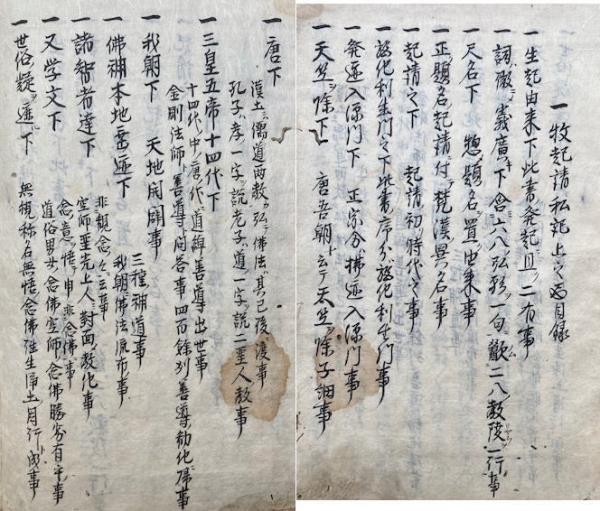 一枚起請私記上之西目録
一生起由来下此書発起且二有事
一詞微義廣下念六八弘教一句歡二八教陵一行事
一尺名下 惣題名置由来事
一正題名起請付乾漢異名事
一起請之下 起請初時代之事
一説化利生門之下此書序分説化利生門事
一発迹入源門下 正宗分拂迹入源門事
一天竺除下 唐吾朝云天竺除子細事
一唐下
漢土儒道両教弘佛法其已後渡事
孔子孝一字説老子道一字説二聖人教事
一三皇五帝十四代下
十四代中唐代道綽善導出世事
金剛法師善導問答事四百餘列善導勧化帰事
一我朝下 天地開闢事
三種神道事
一佛神本地垂迹下
我朝佛法流布事
一諸智者達下
非観念念三事
空師聖光上人對面教化事
一又学文下
念意悟申非念佛事
道俗男女念佛空師念佛勝劣有乎事
一世俗疑遮下 無観称名無悟念佛往生浄土月行成事